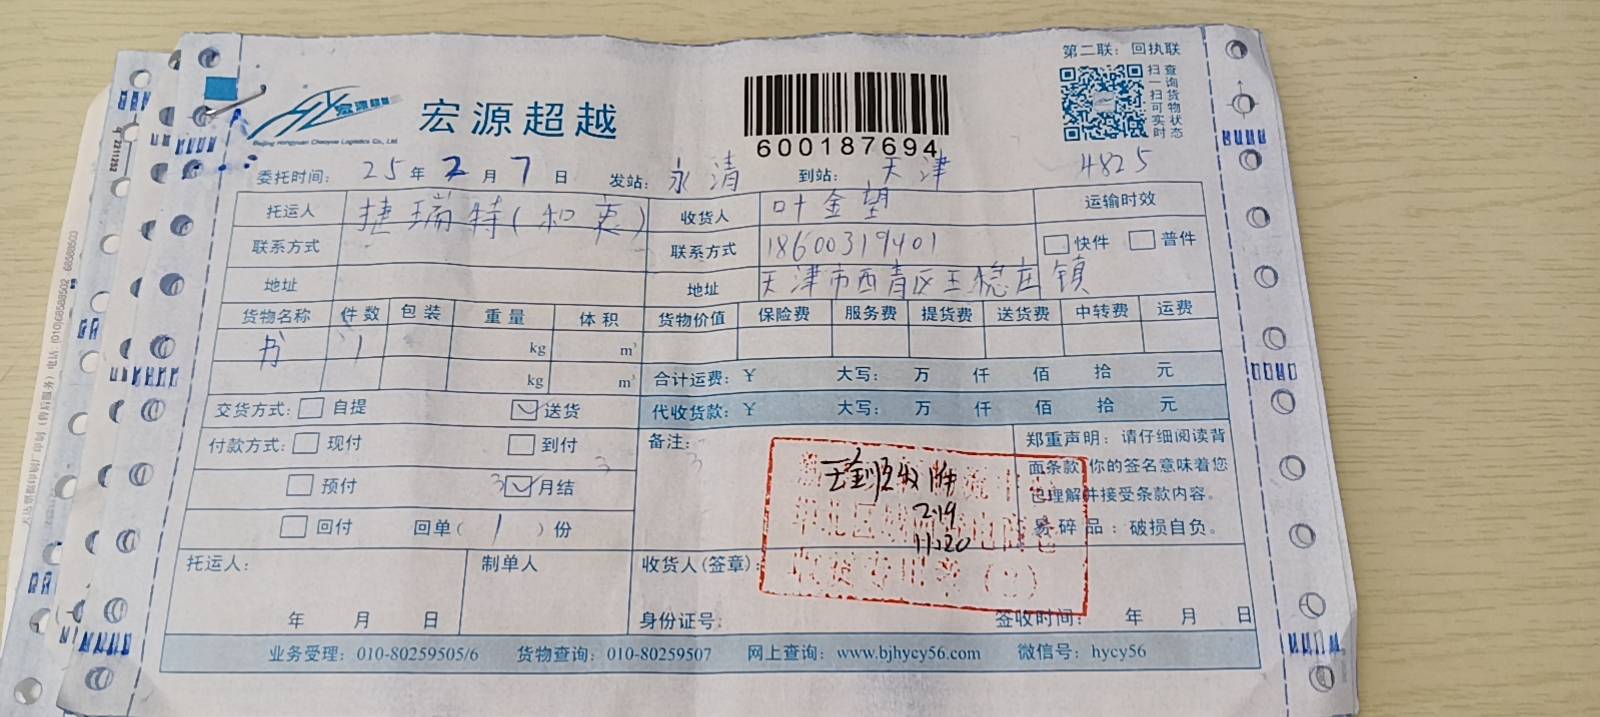 第二联：回执联
扫一扫可实时
查询货物状态
宏源超越
Beijing Hongyuan Chaoyue Logistics Co., Ltd.
宏源超越
600187694
4825
委托时间： 25 年 2 月 7 日 发站： 永清 到站： 天津
托运人 捷瑞特（和 收货人 叶金望 运输时效
联系方式 联系方式 18600319401 快件 普件
地址 地址 天津市西青区王稳庄镇
货物名称 件数 包装 重量 体积 货物价值 保险费 服务费 提货费 送货费 中转费 运费
书 1 kg m³
kg m³ 合计运费：¥ 大写： 万 仟 佰 拾 元
交货方式： 自提 送货 代收货款：¥ 大写： 万 仟 佰 拾 元
付款方式： 现付 到付 备注：
预付 月结
回付 回单（ 1 ）份
郑重声明：请仔细阅读背
面条款，你的签名意味着您
已理解并接受条款内容。
易碎品：破损自负。
2.19
11:20
托运人： 制单人 收货人（签章）：
年 月 日 身份证号： 签收时间： 年 月 日
业务受理：010-80259505/6 货物查询：010-80259507 网上查询：www.bjhycy56.com 微信号：hycy56